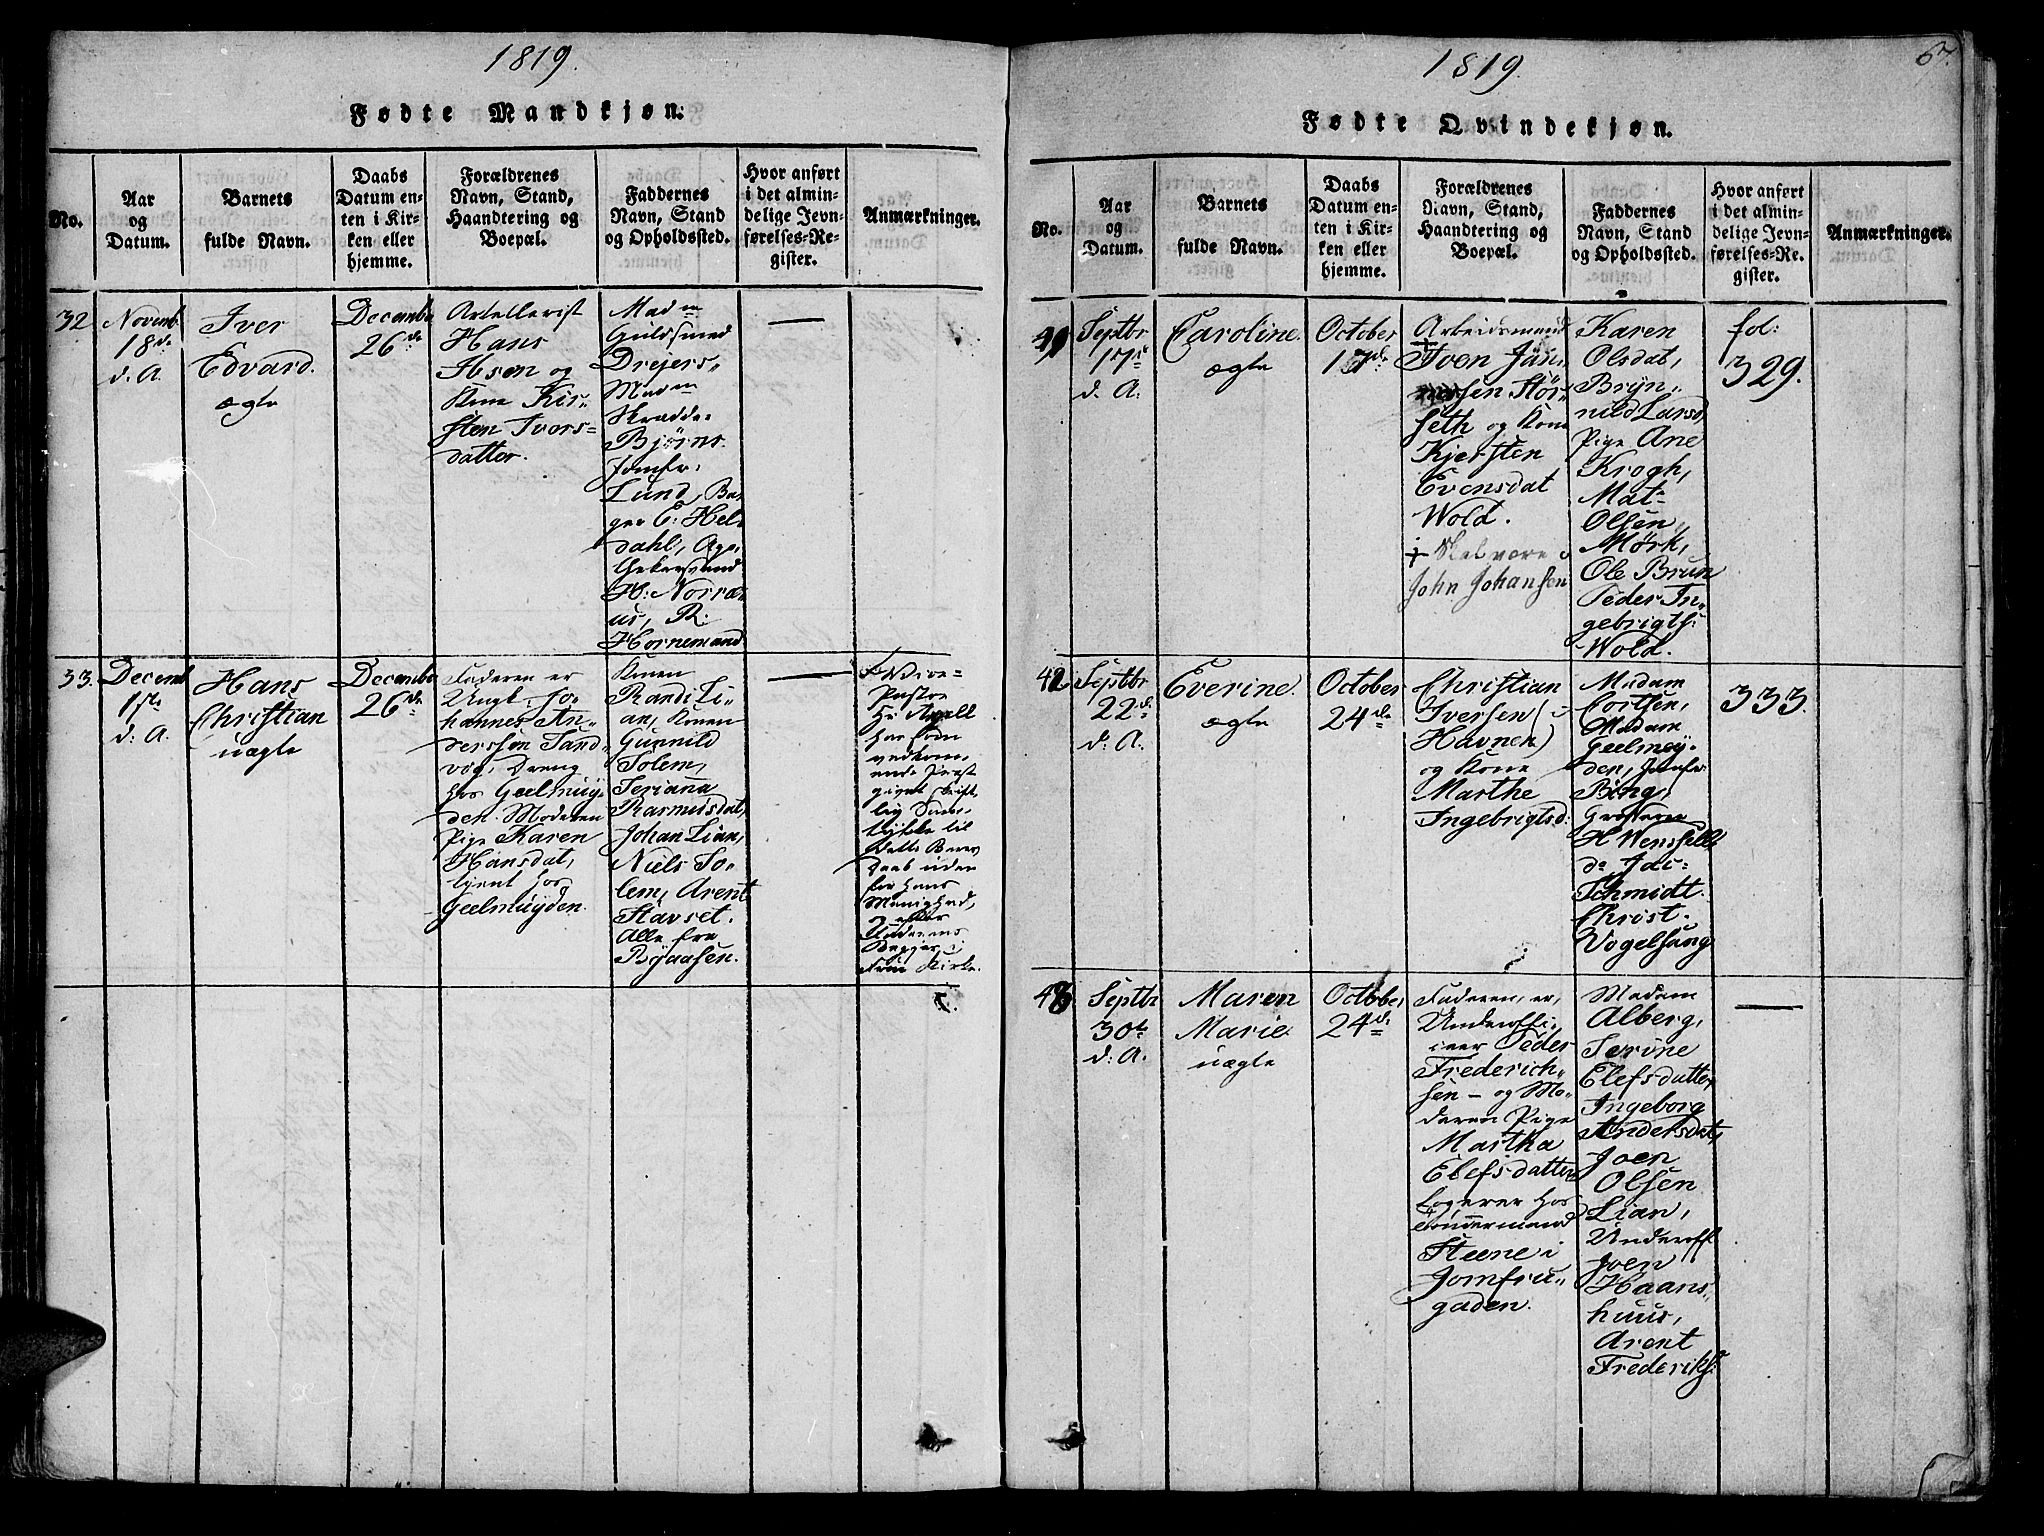 1819.
Fødte Mandkjøn:
No.
Aar
og
Datum.
Barnets
fulde Navn.
Daabs
Datum en-
ten i Kir-
ken eller
hjemme.
Forældrenes
Navn, Stand,
Haandtering og
Boepæl.
Faddernes
Navn, Stand
og Opholdssted.
Hvor anført
i det almin-
delige Jevn-
førelses-Re-
gister.
Anmærkninger.
32
Novemb
18de
d. A.
Iver
Edvard.
ægte
Decembr
26de
Artellerist
Hans
Ibsen og
Kone Kir-
sten Ivers-
datter.
Madm
Guldsmed
Drejers,
Madm
Skrædder
Bjørns.
Jomfr.
Lund, Ba-
ger E: Hel-
dahl,
H: Norræ-
us, R:
Hornemand
33.
Decemb
17de
d: A.
Hans
Christian
uægte
Decembr
26de
Faderen er
Ungk. Jo-
hannes An-
derssøn Sand-
vog, Dreng
hos Geelmuy-
den. Moderen
Pige Karen
Hansdat,
tjent hos
Geelmuyden.
Konen
Randi Li-
an, Konen
Gunnild
Solem,
Seriana
Rasmusdat,
Johan Lian,
Niels So-
lem, Arent
Stavset.
Alle fra
Byaasen.
Vice-
Pastor
Hr
har som
vedkom-
ende Præst
givet skrift-
lig Sam-
tykke til
dette Barns
Daab uden
for hans
Menighed,
efter
Faderens
Begjer i
Frue Kirke.
1819.
67.
Fødte Qvindekjøn.
No.
Aar
og
Datum.
Barnets
fulde Navn.
Daabs
Datum en-
ten i Kir-
ken eller
hjemme.
Forældrenes
Navn, Stand,
Haandtering og
Boepæl.
Faddernes
Navn, Stand
og Opholdssted.
Hvor anført
i det almin-
delige Jevn-
førelses-Re-
gister.
Anmærkninger.
41
Septbr
17de
d. A.
Caroline.
ægte
October
17de
Arbeidsmand
+
Iven Jan-
sen Stör-
seth og Kone
Kjersten
Evensdat
Wold.
+ Skal være
John Johansen
Karen
Olsdat,
Bryn-
nild Larsd,
Pige Ane
Krogh,
Mat-
Olsen
Mörk,
Ole Brun
Peder In-
gebrigts:
Wold.
fol:
329.
42
Septbr
22de
d: A.
Everine.
ægte
October
24de
Christian
Iversen (i
Havnen)
og Kone
Marthe
Ingebrigtsd:
Madam
Cortsen,
Madam
Geelmey-
den, Jomfr:
Bing,
H Wensell
do Jac:
Schmidt.
Christ.
Vogelsang
333.
43
Septbr
30te
d: A.
Maren
Marie.
uægte
October
24de
Faderen, er,
Underoffi-
ceer Peder
Frederich-
sen - og Mo-
deren Pige
Martha
Elefsdatter
Logerer hos
Töndermand
Steene i
Jomfru-
gaden.
Madam
Alberg,
Serine
Elefsdatter,
Ingeborg
Andersdat,
Joen
Olsen
Lian,
Underoff.
Joen
Haans-
huus,
Arent
Frederiks: